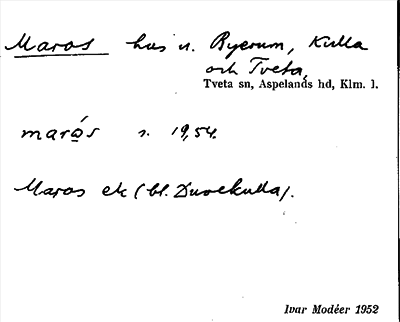 Maros hus u. Ryerum, Kulla
och Tveta,
Tveta sn, Aspelands hd, Klm. l.
marås s. 19, 54.
Maros ek (bl. Duvekulla).
Ivar Modéer 1952